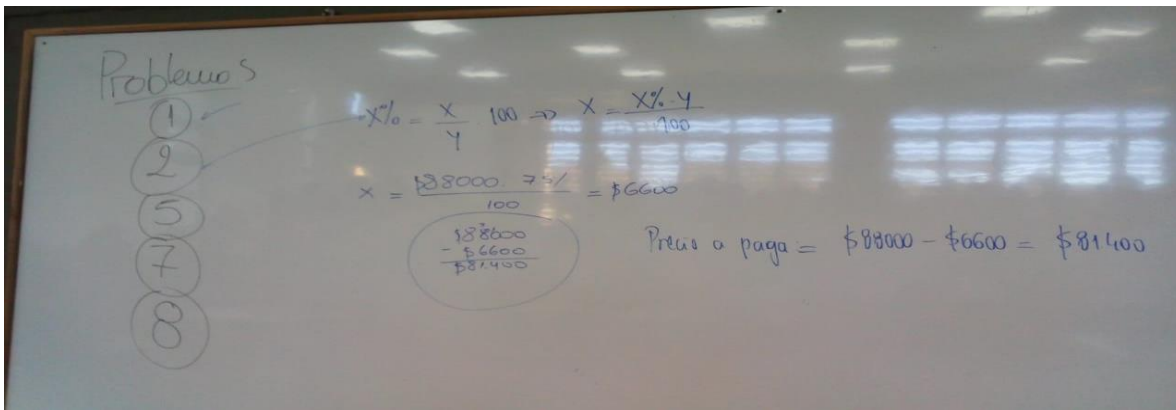 Problemas
1
2
5
7
8
X% = X/Y 100 => X = X% · Y / 100
X = $88000 · 7 5% / 100 = $6600
$88000
- $6600
$81.400
Precio a paga = $88000 - $6600 = $81400